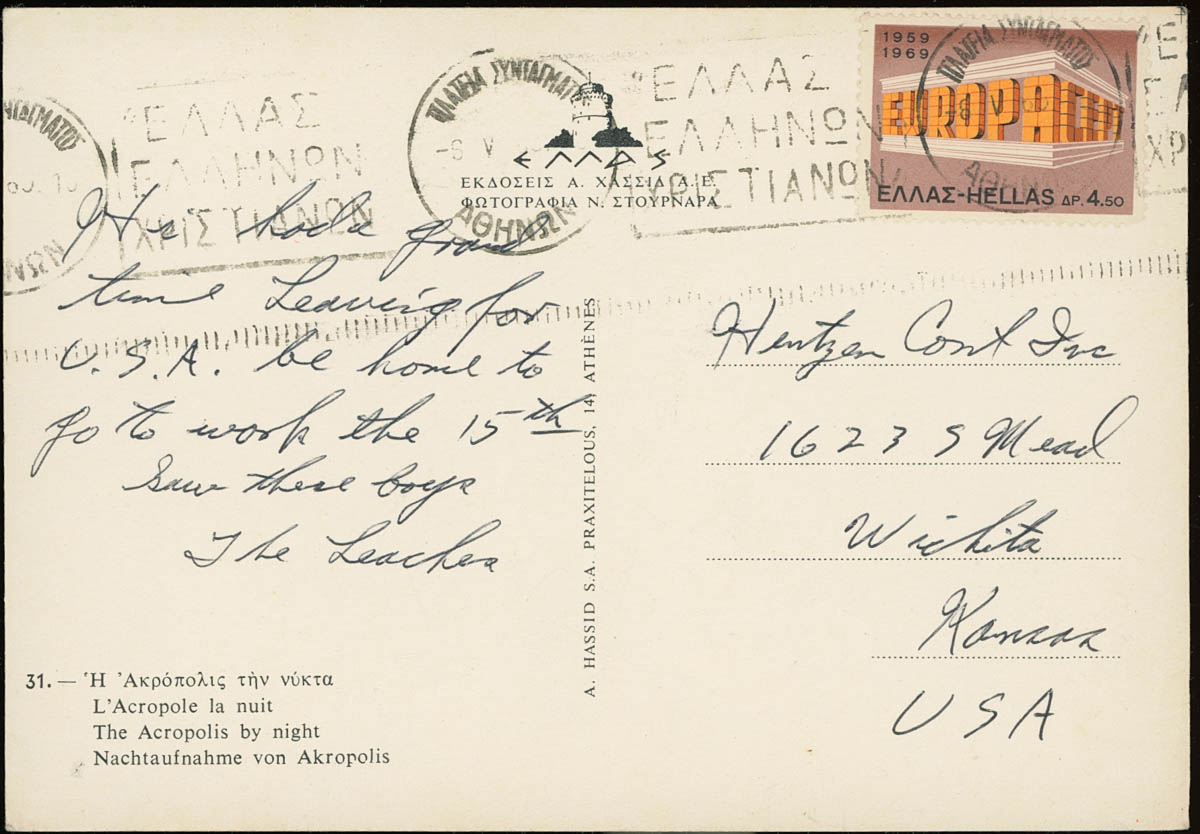 ΠΛΑΤΕΙΑ ΣΥΝΤΑΓΜΑΤΟΣ
ΑΘΗΝΩΝ
"ΕΛΛΑΣ
ΕΛΛΗΝΩΝ
ΧΡΙΣΤΙΑΝΩΝ
ΠΛΑΤΕΙΑ ΣΥΝΤΑΓΜΑΤΟΣ
ΑΘΗΝΩΝ
"ΕΛΛΑΣ
ΕΛΛΗΝΩΝ
ΧΡΙΣΤΙΑΝΩΝ
ΠΛΑΤΕΙΑ ΣΥΝΤΑΓΜΑΤΟΣ
ΑΘΗΝΩΝ
1959
1969
EUROPA CEPT
ΕΛΛΑΣ-HELLAS ΔΡ. 4.50
ΕΛΛΑΣ
ΕΚΔΟΣΕΙΣ Α. ΧΑΣΣΙΔ Α.Ε.
ΦΩΤΟΓΡΑΦΙΑ Ν. ΣΤΟΥΡΝΑΡΑ
had a grand
time Leaving for
U.S.A. be home to
go to work the 15th
Saw these boys
The Leaches
A. HASSID S.A. PRAXITELOUS, 14, ATHÈNES
Hentzen Cont Inc
1623 S Mead
Wichita
Kansas
USA
31.— Ἡ Ἀκρόπολις τὴν νύκτα
L'Acropole la nuit
The Acropolis by night
Nachtaufnahme von Akropolis